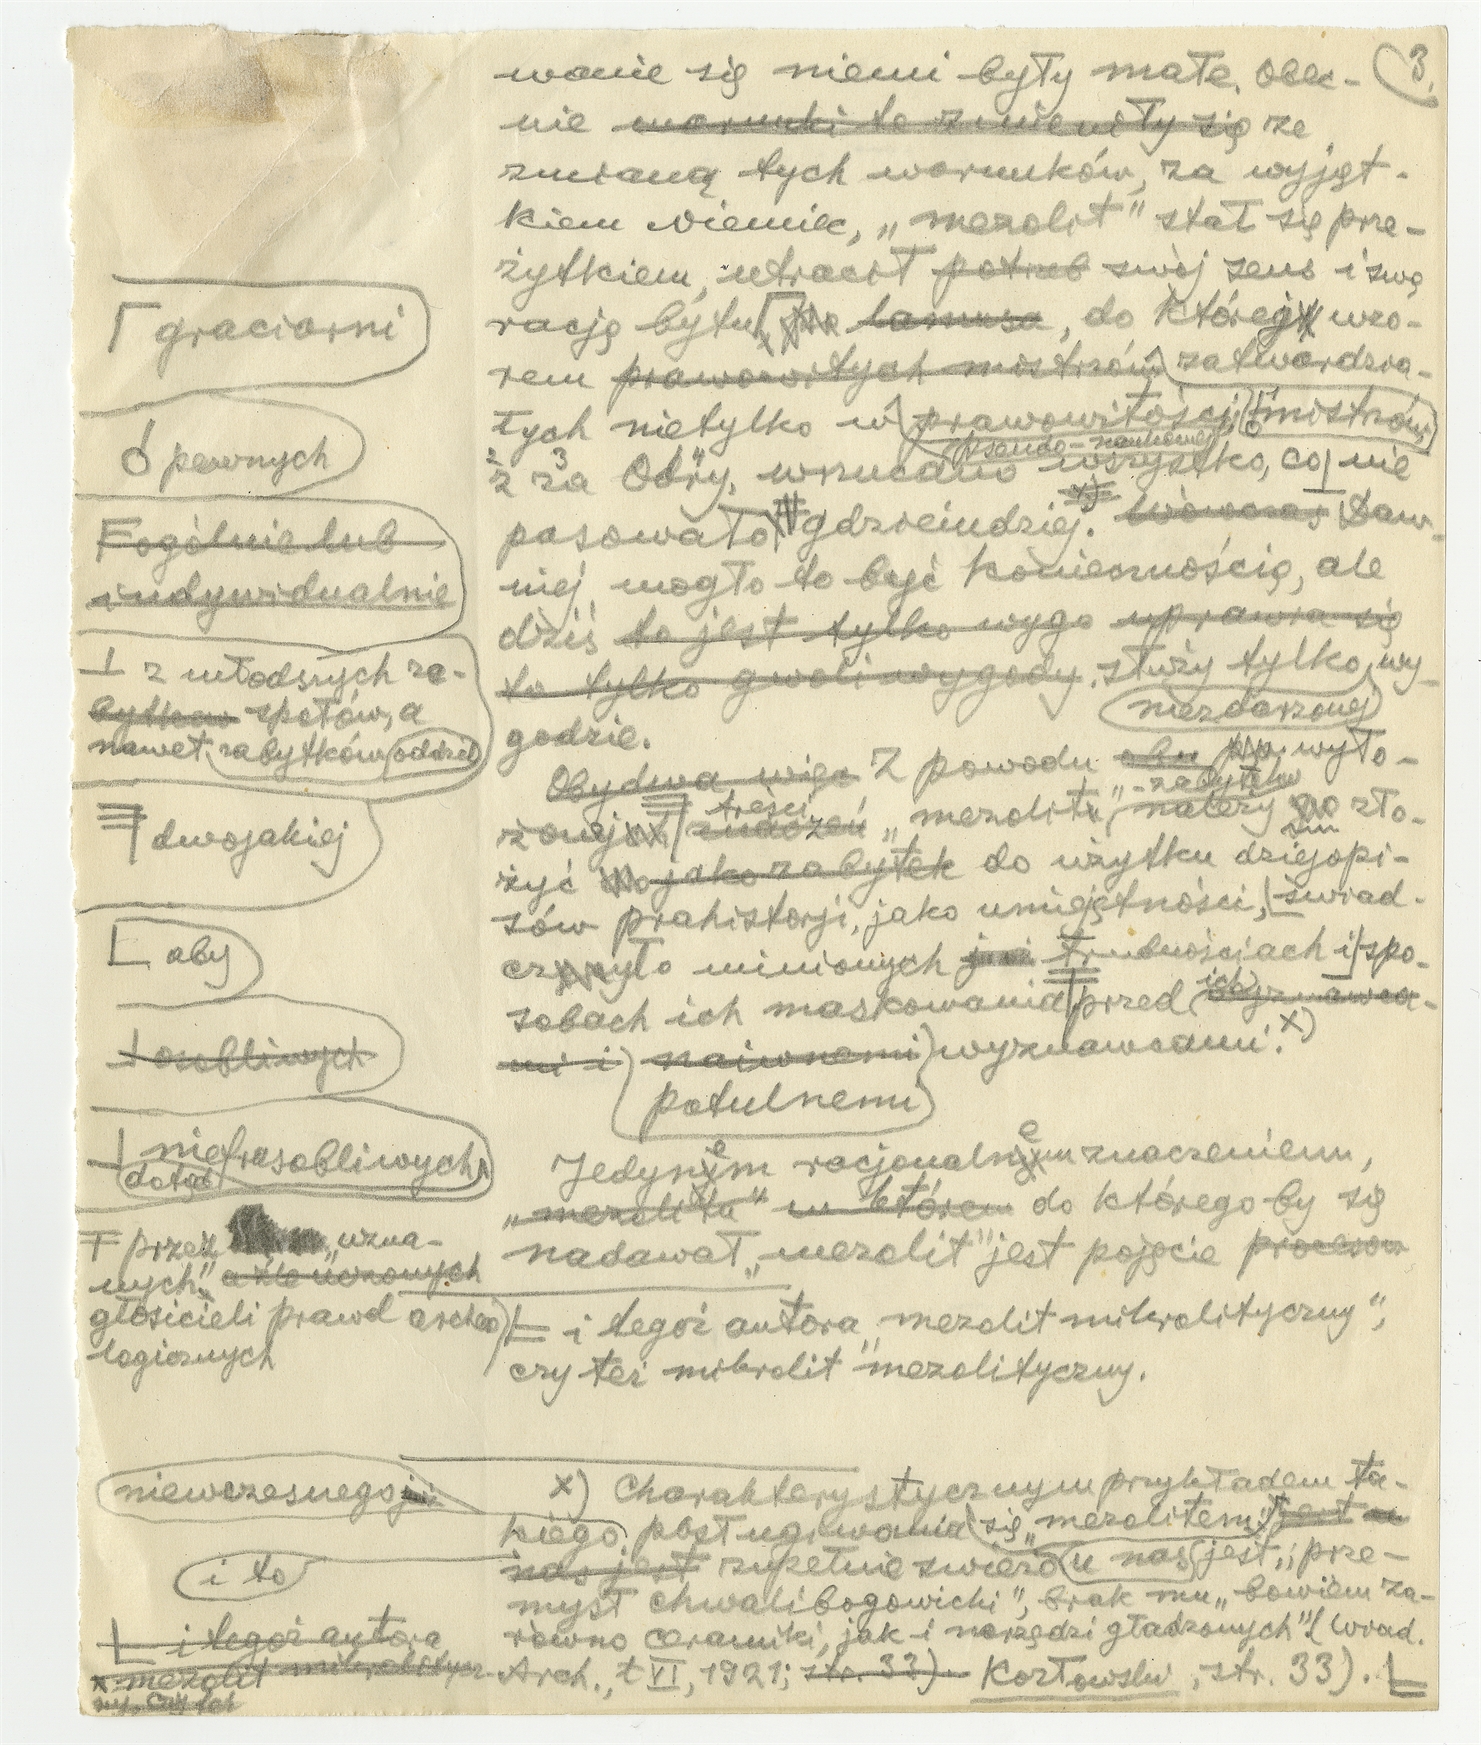 3.
wanie się niemi były małe. Obec-
nie warunki te zmieniły się ze
zmianą tych warunków, za wyjąt-
kiem Niemiec, „mezolit" stał się prze-
żytkiem, utracił potrzeb swój sens i swą
rację bytu lamusa, do której wzo-
rem prawowitych mistrzów zatwardzia-
łych nietylko w prawowitości mistrzów
pseudo-naukowej
z za Odry, wrzucano wszystko, co nie
pasowało gdzieindziej. x) Wówczas Daw-
niej mogło to być koniecznością, ale
dziś to jest tylko wygo uprawia się
to tylko gwoli wygody. służy tylko wy-
godzie.
niezdarzonej
Obydwa więc Z powodu obu wyło-
zabytku
treści
żonej znaczeń „mezolit" należy zło-
żyć jako zabytek do użytku dziejopi-
sów prahistorji, jako umiejętności, świad-
czyło minionych trudnościach i spo-
sobach ich maskowania przed ich wyznawca-
mi i naiwnemi wyznawcami. x)
potulnemi
Jedynem racjonalnem znaczeniem,
„mezolitu" w którem do którego by się
nadawał „mezolit" jest pojęcie procesow
i tegoż autora „mezolit mikrolityczny",
czy też mikrolit "mezolityczny.
x) Charakterystycznym przykładem ta-
kiego posługiwania się „mezolitem" jest u
nas jest zupełnie świeżo u nas jest „prze-
mysł chwalibogowicki", brak mu „bowiem za-
równo ceramiki, jak i narzędzi gładzonych" (Wiad.
Arch., t VI, 1921; str. 33). Kozłowski, str. 33).
graciarni
pewnych
ogólnie lub
indywidualnie
z młodszych ze-
bytkow społów, a
nawet zabytków oddziel
dwojakiej
aby
osobliwych
niefrasobliwych
dotąd
przez „uzna-
nych" a źle uczonych
głosicieli prawd archeo
logicznych
niewczesnego
i to
i tegoż autora
mezolit mikrolitycz-
ny, czy też